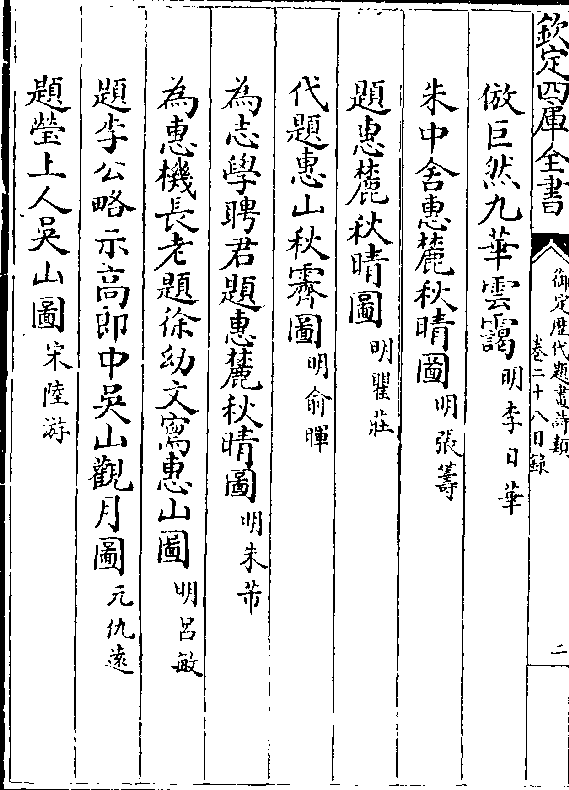 欽定四庫全書
御定歴代題畫詩類
卷二十八目録
二
倣巨然九華雲靄明李日華
朱中舍惠麓秋晴圖明張籌
題惠麓秋晴圖明瞿莊
代題惠山秋霽圖明俞暉
為志學聘君題惠麓秋晴圖明朱芾
為惠機長老題徐幼文寫惠山圖明呂敏
題李公略示高郎中吳山觀月圖元仇逺
題瑩上人吳山圖宋陸游